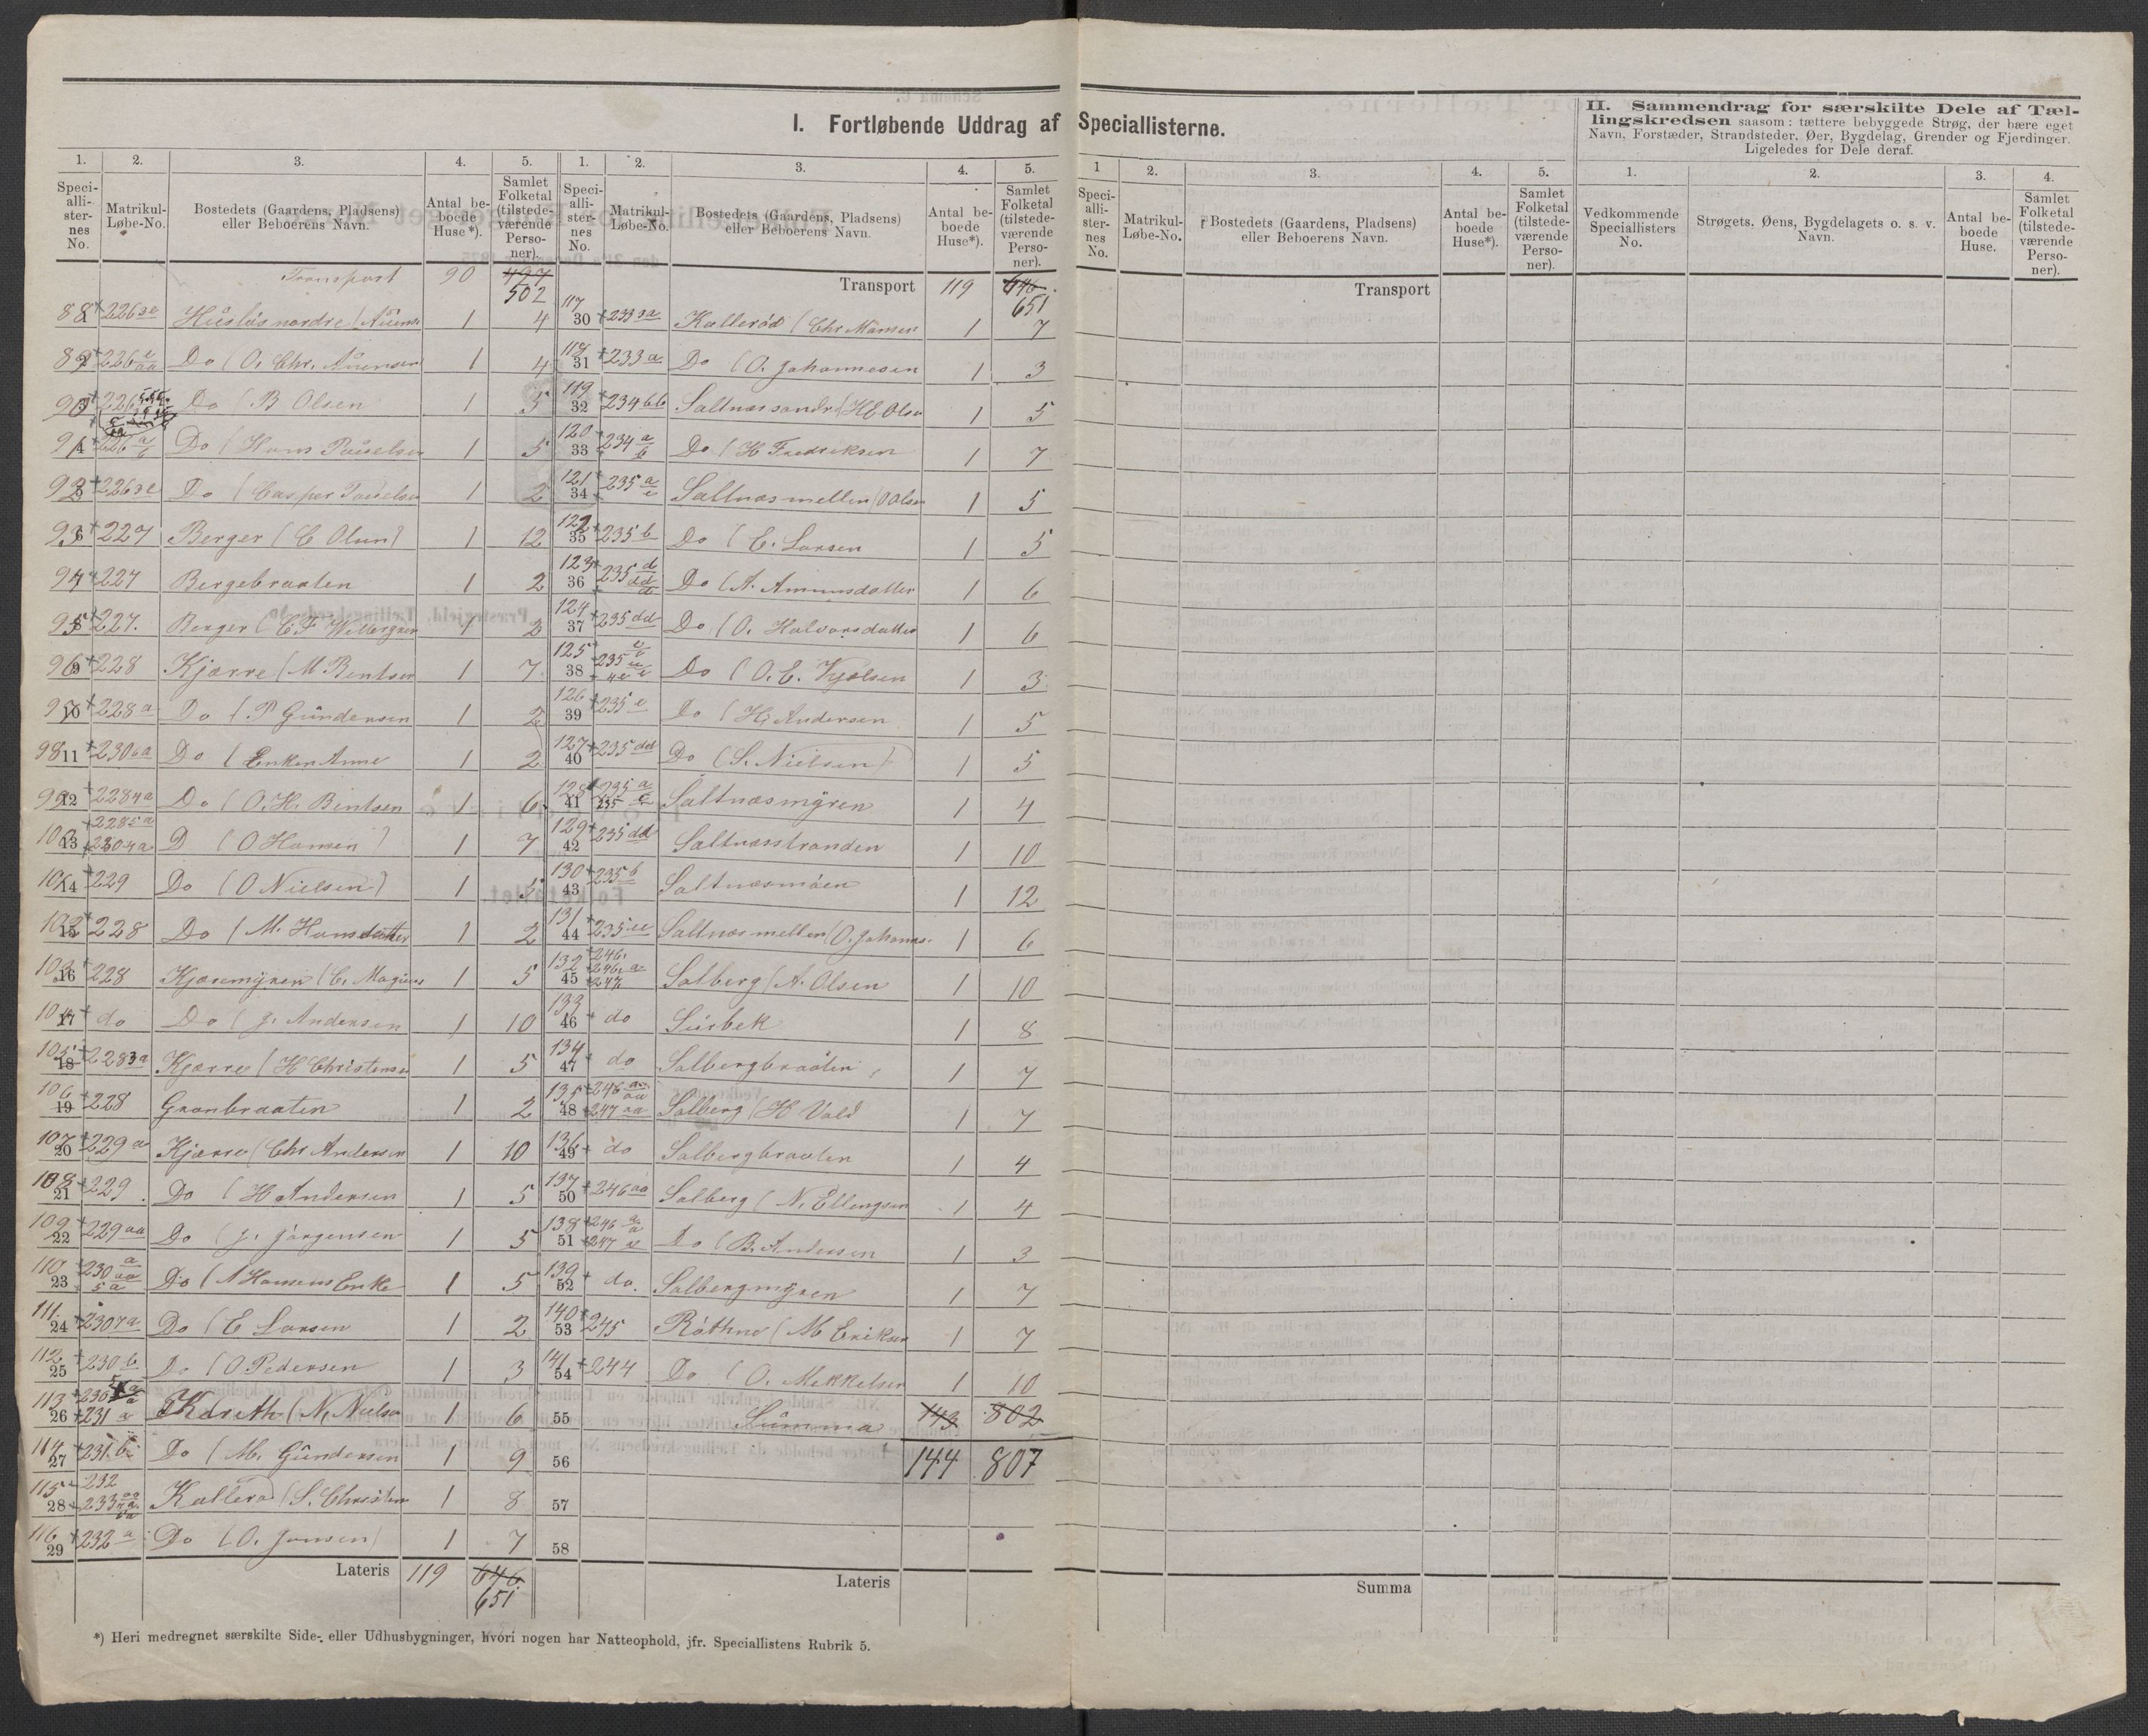 I. Fortløbende Uddrag af Speciallisterne.
1. 2. 3. 4. 5.
Speciallisternes No. Matrikul-Løbe-No. Bostedets (Gaardens, Pladsens) eller Beboerens Navn. Antal beboede Huse*). Samlet Folketal (tilstedeværende Personer).
Transport 90 497 502
88 226 Huslös nordre 1 4
89 226 Do (O. Chr. 1 4
90 226 Do (B Olsen 1 5
91 226 Do (Hans 1 5
92 226 Do (Casper 1 2
93 227 Berger (C Olsen) 1 12
94 227 Bergebraaten 1 2
95 227. Berger (C. F. 1 2
96 228 Kjærre (M. Bentsen 1 7
97 228a Do (P Gündersen 1 2
98 11 230 Do (Enken Anne 1 2
99 12 2284a Do (O. H. Bentsen 1 6
100 13 2285a 2304a D (O Hansen) 1 7
101 14 229 Do (O Nielsen) 1
102 15 228 Do (M. Hansdatter 1 2
103 16 228 Kjæremÿren (C. 1 5
104 17 do Do (J. Andersen 1 10
105 18 2283a Kjærre (H Christensen 1 5
106 19 228 Granbraaten 1 2
107 20 229a Kjærre (Chr Andersen 1 10
108 21 229. Do (H Andersen 1 5
109 22 229aa Do (J. Jörgensen 1 5
110 23 230 a aa 5a Do (N Hansens Enke 1 5
111. 24 2307a Do (E Larsen 1 2
112 25 230b Do (O Pedersen 1 3
113 26 230 231a (N. Nielsen 1 6
114 27 231b Do (M. Gündersen 1 9
115 28 232 233 Kallerö (S. 1 8
116 29 232a Do (O. Jansen) 1 7
Lateris 119 646 651
1. 2. 3. 4. 5.
Speciallisternes No. Matrikul-Løbe-No. Bostedets (Gaardens, Pladsens) eller Beboerens Navn. Antal beboede Huse*). Samlet Folketal (tilstedeværende Personer).
Transport 119 646 651
117 30 233 Kallerød (Chr 1 7
118 31 233a Do (O. Johannesen 1 3
119 32 234bb Saltnæs søndr (HC Olsen 1 5
120 33 234 a b Do (H Fredriksen 1 7
121 34 235 a Saltnæs mellem (O Olsen 1 5
122 35 235b Do (C. Larsen 1 5
123 36 235 d Do (A. Amundsdatter 1 6
124 37 235dd Do (O. Halvorsdatter 1 6
125 38 235 Do (O. E. 1 3
126 39 235e Do (H. Andersen 1 5
127 40 235dd Do (S. Nielsen) 1 5
128 41 235 Saltnæsmÿren 1 4
129 42 235dd Saltnæsstranden 1 10
130 43 235b Saltnæsmöen 1 12
131 44 235 Saltnæs mellem (O. Johannes. 1 6
132 45 246. 246. a 247. Salberg (A. Olsen 1 10
133 46 do Surbek 1 8
134 47 do Salbergbraaten 1 7
135 48 246 247 aa Salberg (H Vold 1 7
136 49 do Salbergbraaten 1 4
137 50 246aa Salberg (N. Ellingsen 1 4
138 51 246 247 Do (B. Andersen 1 3
139 52 do. Salbergmÿren 1 7
140 53 245 Röthne (M. Eriksen 1 7
141 54 244 Do (O. Mikkelsen 1 10
55 Summa 143 802
56 144 807
57
58
Lateris
1 2. 3. 4. 5.
Speciallisternes No. Matrikul-Løbe-No. Bostedets (Gaardens, Pladsens) eller Beboerens Navn. Antal beboede Huse*). Samlet Folketal (tilstedeværende Personer).
Transport
Summa
II. Sammendrag for særskilte Dele af Tællingskredsen saasom: tættere bebyggede Strøg, der bære eget
Navn, Forstæder, Strandsteder, Øer, Bygdelag, Grender og Fjerdinger.
Ligeledes for Dele deraf.
1. 2. 3. 4.
Vedkommende Speciallisters No. Strøgets, Øens, Bygdelagets o. s. v. Navn. Antal beboede Huse. Samlet Folketal (tilstedeværende Personer).
*) Heri medregnet særskilte Side- eller Udhusbygninger, hvori nogen har Natteophold, jfr. Speciallistens Rubrik 5.